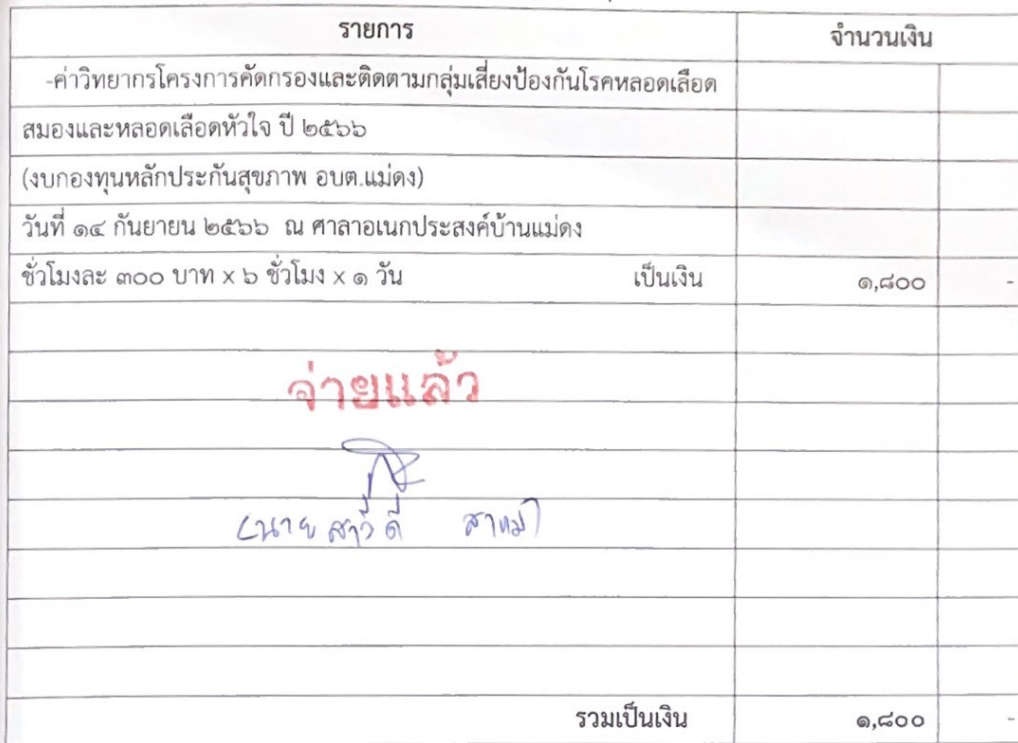 รายการ จำนวนเงิน
-ค่าวิทยากรโครงการคัดกรองและติดตามกลุ่มเสี่ยงป้องกันโรคหลอดเลือด
สมองและหลอดเลือดหัวใจ ปี ๒๕๖๖
(งบกองทุนหลักประกันสุขภาพ อบต.แม่ดง)
วันที่ ๑๔ กันยายน ๒๕๖๖ ณ ศาลาอเนกประสงค์บ้านแม่ดง
ชั่วโมงละ ๓๐๐ บาท x ๖ ชั่วโมง x ๑ วัน เป็นเงิน ๑,๘๐๐ -
จ่ายแล้ว
(นาย
รวมเป็นเงิน ๑,๘๐๐ -